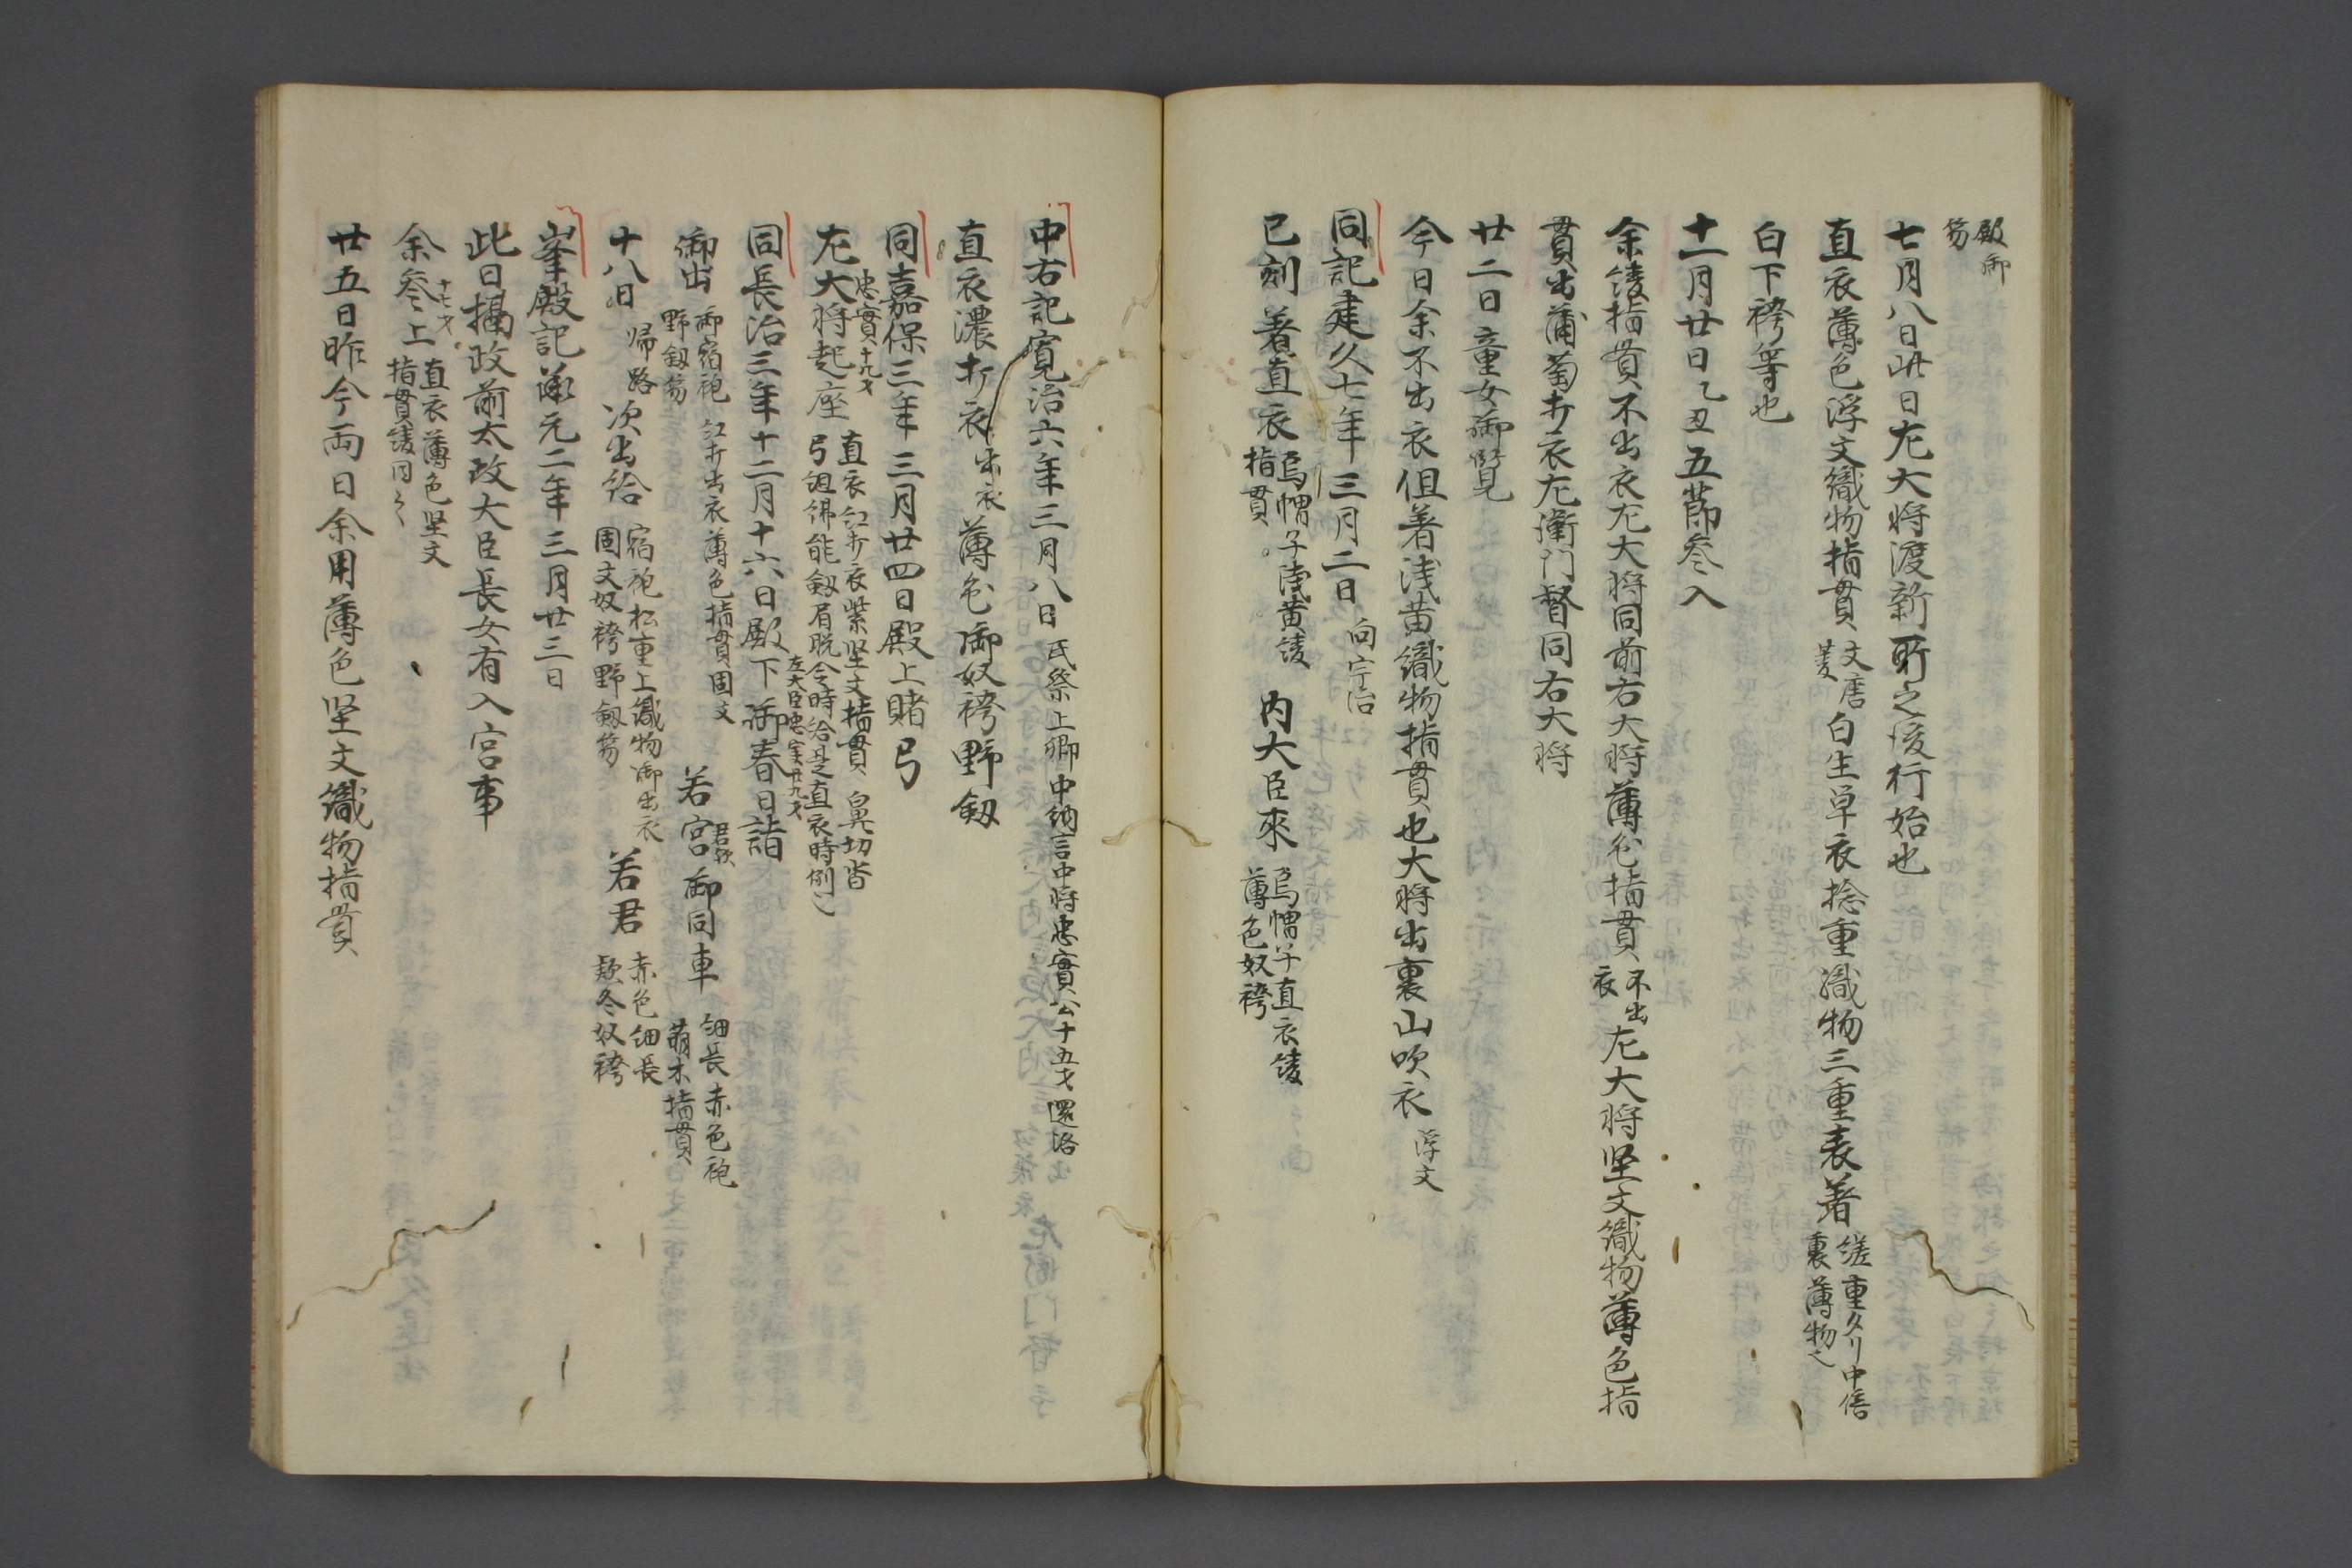 殿御
笏
七月八日此日左大将渡新所之後行始也
直衣薄色浮文織物指貫文唐菱白生単衣捻重織物三重表著縒重タリ中倍裏薄物也
白下袴等也
十一月廿日乙丑五節参入
余綾指貫不出衣左大将同前右大将薄色指貫不出衣左大将堅文織物薄色指
貫出蒲萄打衣左衛門督同右大将
廿二日童女御覧
今日余不出衣但著浅黄織物指貫也大将出裏山吹衣浮文
同記建久七年三月二日向宇治
已刻著直衣烏帽子浅黄綾指貫内大臣来烏帽子直衣綾薄色奴袴
中右記寛治六年三月八日氏祭上卿中納言中将忠實公十五才還洛
直衣濃打衣出衣薄色御奴袴野劔
同嘉保三年三月廿四日殿上賭弓
左大将起座忠實十九才直衣紅打衣紫堅文指貫鼻切沓弓
同長治三年十二月十六日殿下御春日詣左大臣忠実廿九才
御出御宿袍紅打出衣薄色指貫固文野劔笏若宮若君歟御同車細長赤色袍萌木指貫
十八日帰路次出給宿袍松重上織物御出衣固文奴袴野劔笏若君赤色細長款冬奴袴
峯殿記承元二年三月廿三日
此日摂政前太政大臣長女有入宮事
余参上十七才直衣薄色堅文指貫綾同之
廿五日昨今両日余用薄色堅文織物指貫